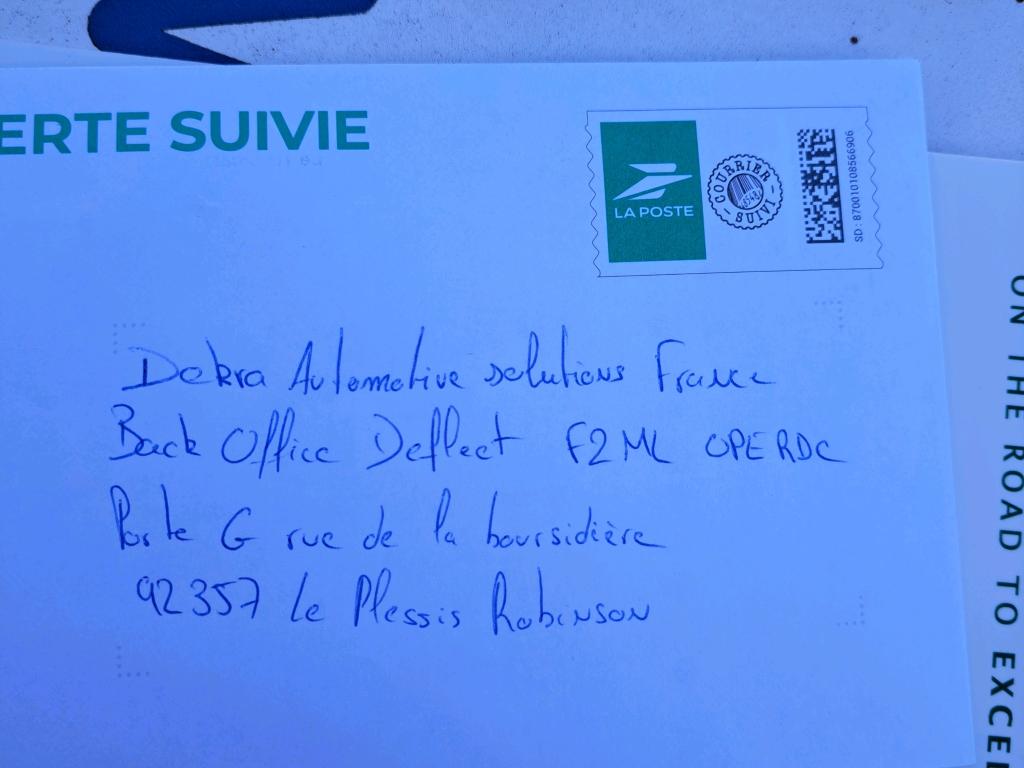 ERTE SUIVIE
LA POSTE
COURRIER
SUIVI
SD : 870010108566906
Dekra Automotive solutions France
Back Office Deflect F2ML OPERDC
Porte G rue de la boursidière
92357 Le Plessis Robinson
ON THE ROAD TO EXCEL